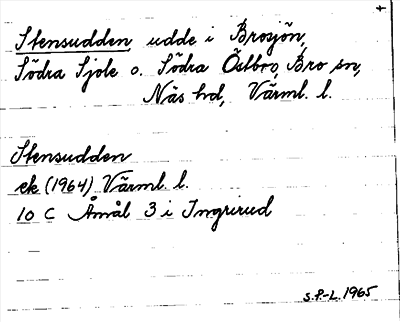 Stensudden udde i Brosjön,
Södra Sjole o. Södra Östbro, Bro sn,
Näs hd, Värml. l.
Stensudden
ek (1964) Värml. l.
10 C Åmål 3 i Ingrirud
S.P.-L. 1965